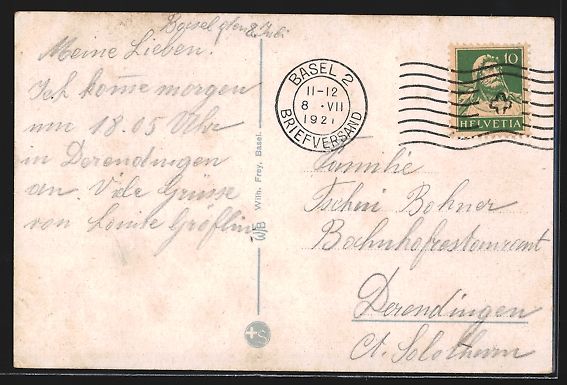 Basel den 8. Juli
Meine Lieben!
Ich kom̄e morgen
um 18.05 Uhr
in Derendingen
an. Viele Grüsse
von Louise Gröflin
W/B Wilh. Frey, Basel.
BASEL 2
11-12
8. VII
1921
BRIEFVERSAND
10
HELVETIA
Familie
Tschui Bohner
Bahnhofrestaurant
Derendingen
Ct. Solothurn